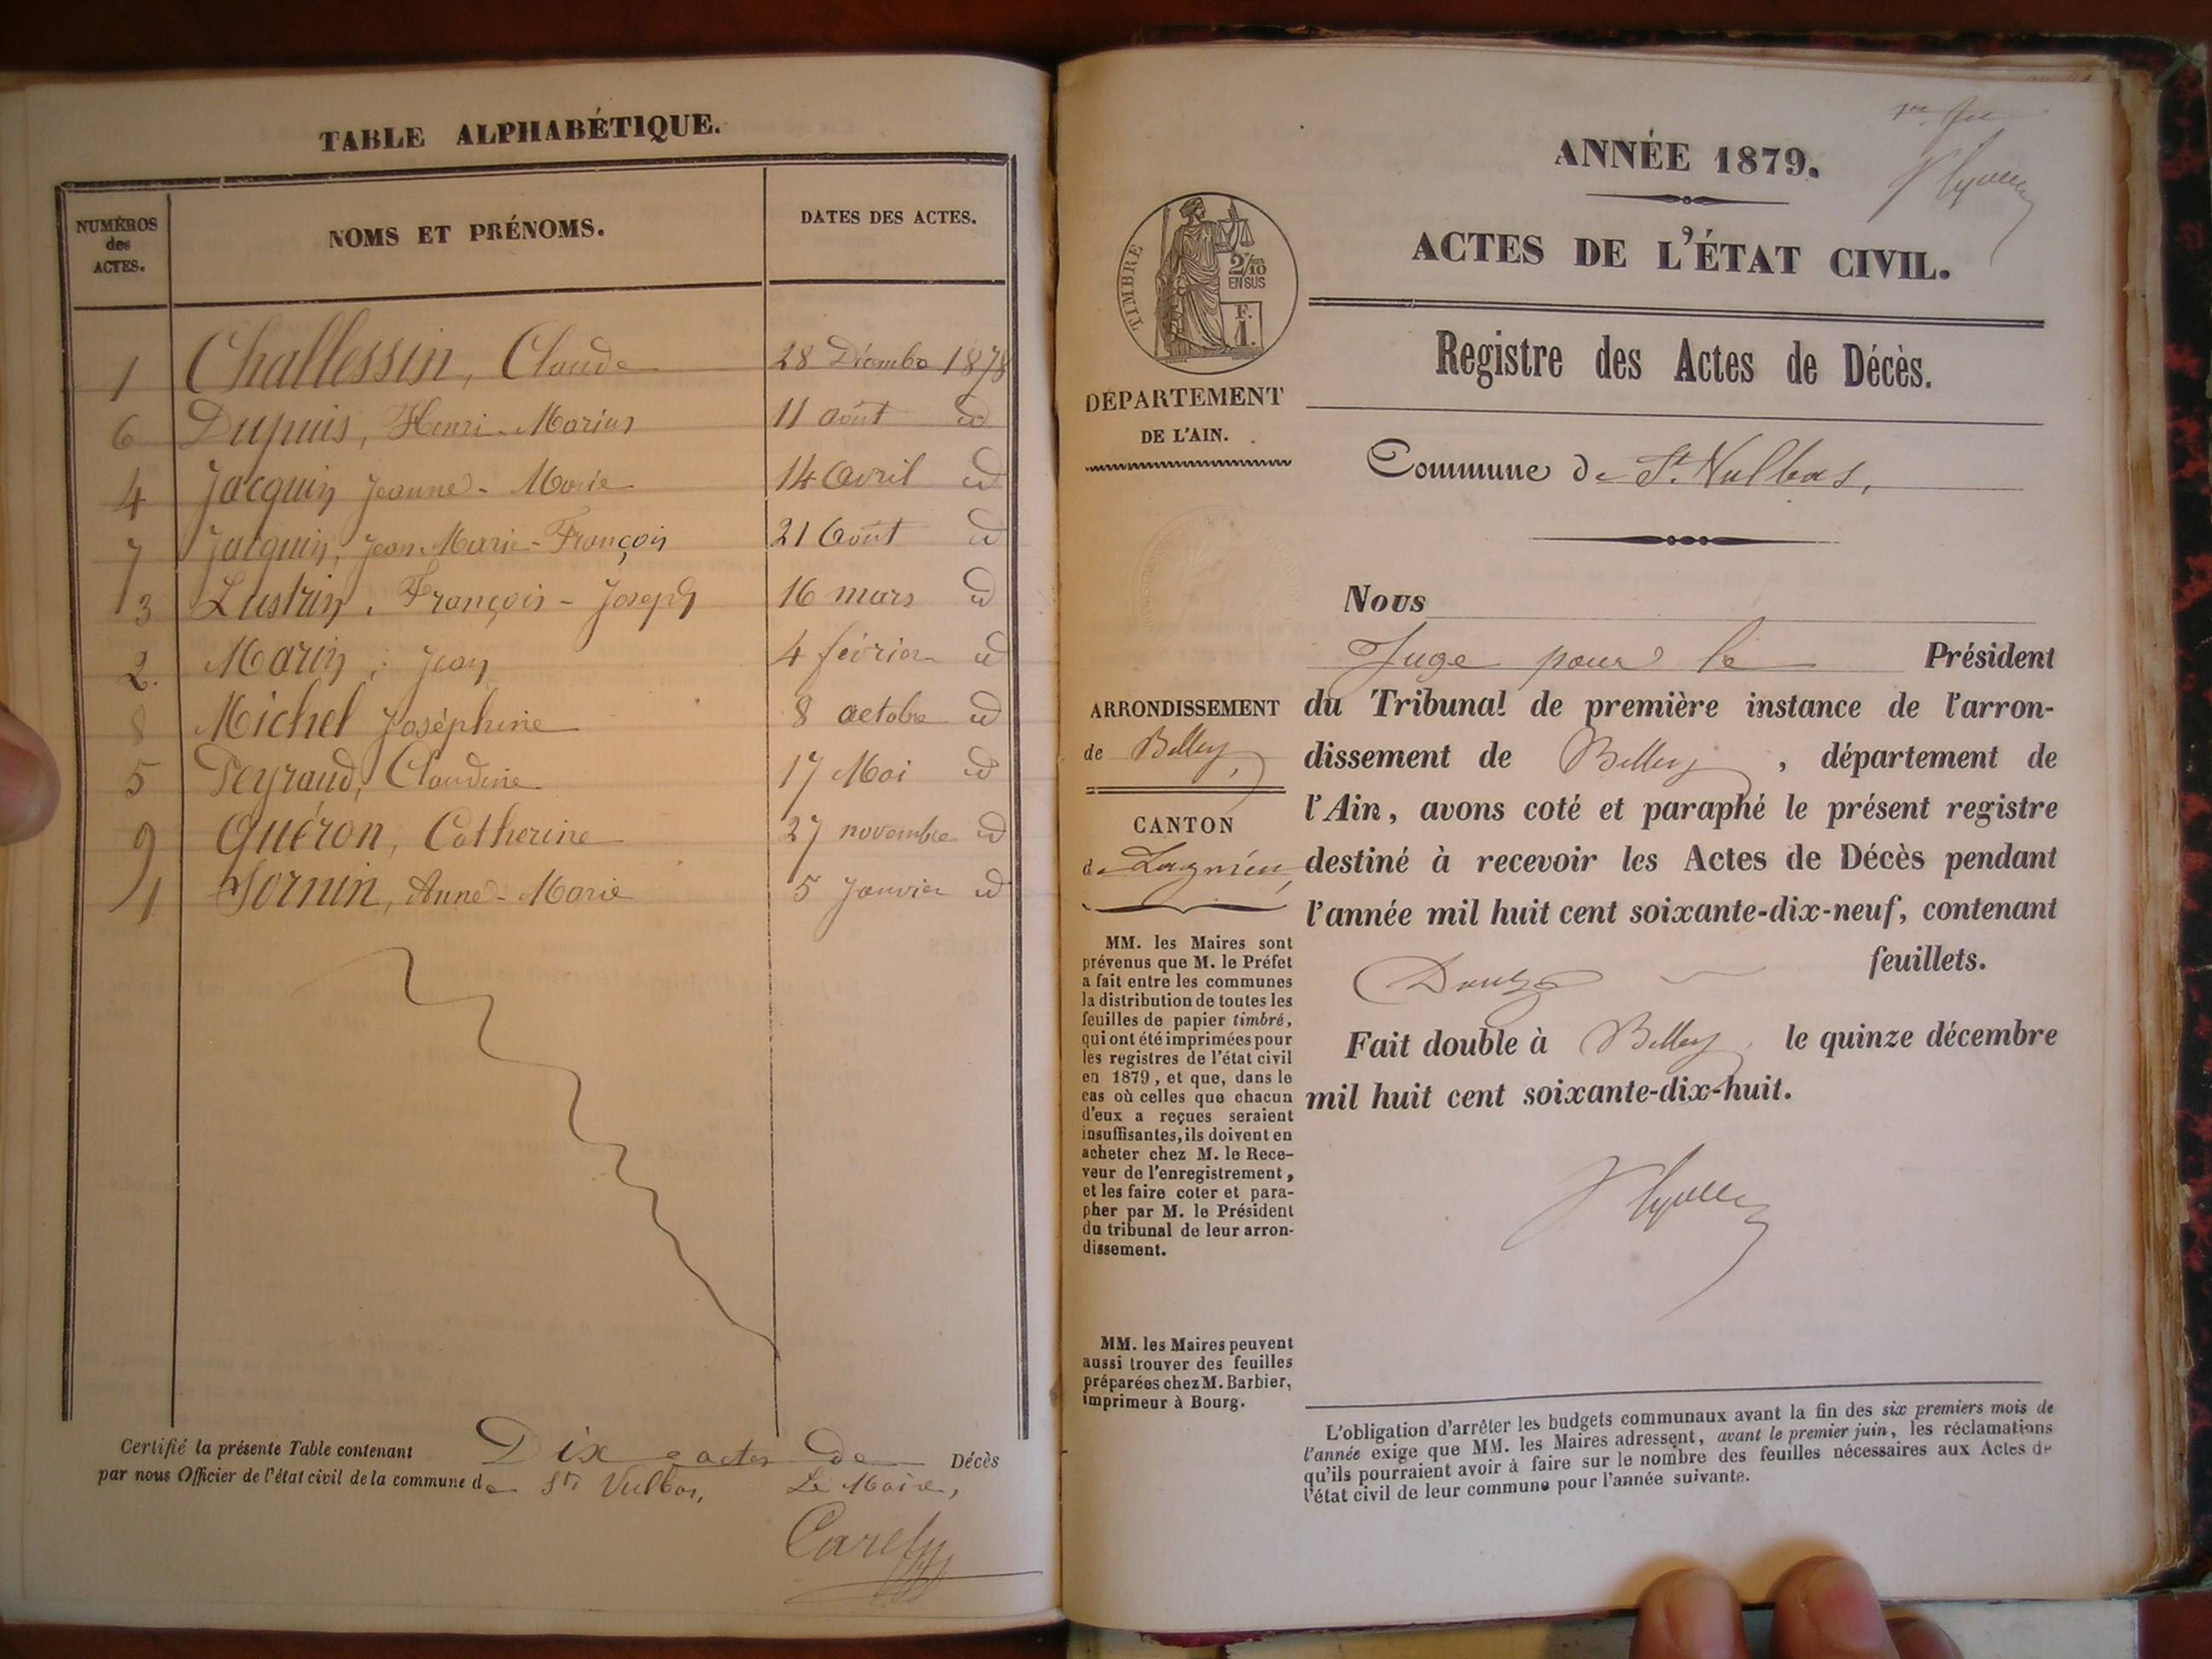 TABLE ALPHABÉTIQUE.
NUMÉROS des ACTES.
NOMS ET PRÉNOMS.
DATES DES ACTES.
1 Challessin, Claude 28 Décembre 1878
6 Dupuis, Henri-Marius 11 août id
4 Jacquin Jeanne-Marie 14 Avril id
7 Jacquin, Jean-Marie-François 21 Août id
3 Lustrin, François-Joseph 16 mars id
2. Marin, Jean 4 février id
8 Michel Joséphine 8 octobre id
5 Peyraud, Claudine 17 Mai id
9 Quéron, Catherine 27 novembre id
1 Sornin, Anne-Marie 5 Janvier id
Certifié la présente Table contenant Dix actes de Décès
par nous Officier de l'état civil de la commune de St Vulbas, Le Maire,
ANNÉE 1879.
ACTES DE L'ÉTAT CIVIL.
TIMBRE
2/10
EN SUS
F.
1.
DÉPARTEMENT
DE L'AIN.
Registre des Actes de Décès.
Commune de St. Vulbas,
Nous
Juge pour le Président
du Tribunal de première instance de l'arron-
dissement de Belley, département de
l'Ain, avons coté et paraphé le présent registre
destiné à recevoir les Actes de Décès pendant
l'année mil huit cent soixante-dix-neuf, contenant
Douze feuillets.
Fait double à Belley, le quinze décembre
mil huit cent soixante-dix-huit.
ARRONDISSEMENT
de Belley,
CANTON
de Lagnieu,
MM. les Maires sont
prévenus que M. le Préfet
a fait entre les communes
la distribution de toutes les
feuilles de papier timbré,
qui ont été imprimées pour
les registres de l'état civil
en 1879, et que, dans le
cas où celles que chacun
d'eux a reçues seraient
insuffisantes, ils doivent en
acheter chez M. le Rece-
veur de l'enregistrement,
et les faire coter et para-
pher par M. le Président
du tribunal de leur arron-
dissement.
MM. les Maires peuvent
aussi trouver des feuilles
préparées chez M. Barbier,
imprimeur à Bourg.
L'obligation d'arrêter les budgets communaux avant la fin des six premiers mois de
l'année exige que MM. les Maires adressent, avant le premier juin, les réclamations
qu'ils pourraient avoir à faire sur le nombre des feuilles nécessaires aux Actes de
l'état civil de leur commune pour l'année suivante.